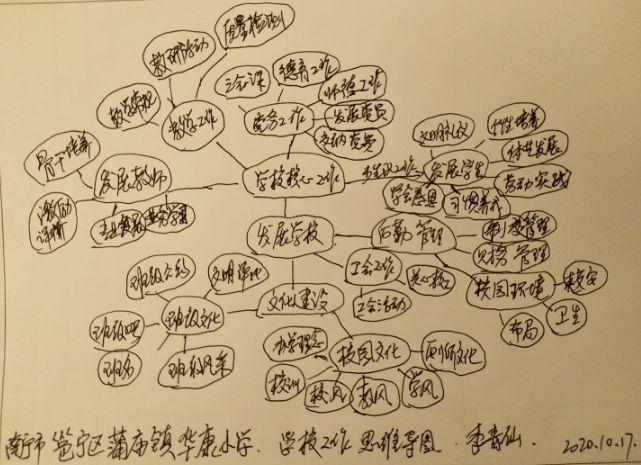 质量检测
教研活动
教学常规
教学工作
三会一课
德育工作
师德工作
党务工作
发展党员
交纳党费
骨干培养
发展教师
激励
评价
学校核心工作
文明礼仪
个性培养
发展学生
体生发展
劳动实践
学会感恩
习惯养成
发展学校
后勤管理
财务管理
校园环境
校安
卫生
布局
工会工作
关心教工
工会活动
文化建设
班级公约
文明评比
班级文化
班名
班级风采
办学理念
校园文化
校训
校风
教风
学风
南宁市邕宁区蒲庙镇华康小学. 学校工作思维导图. 李春仙. 2020.10.17.